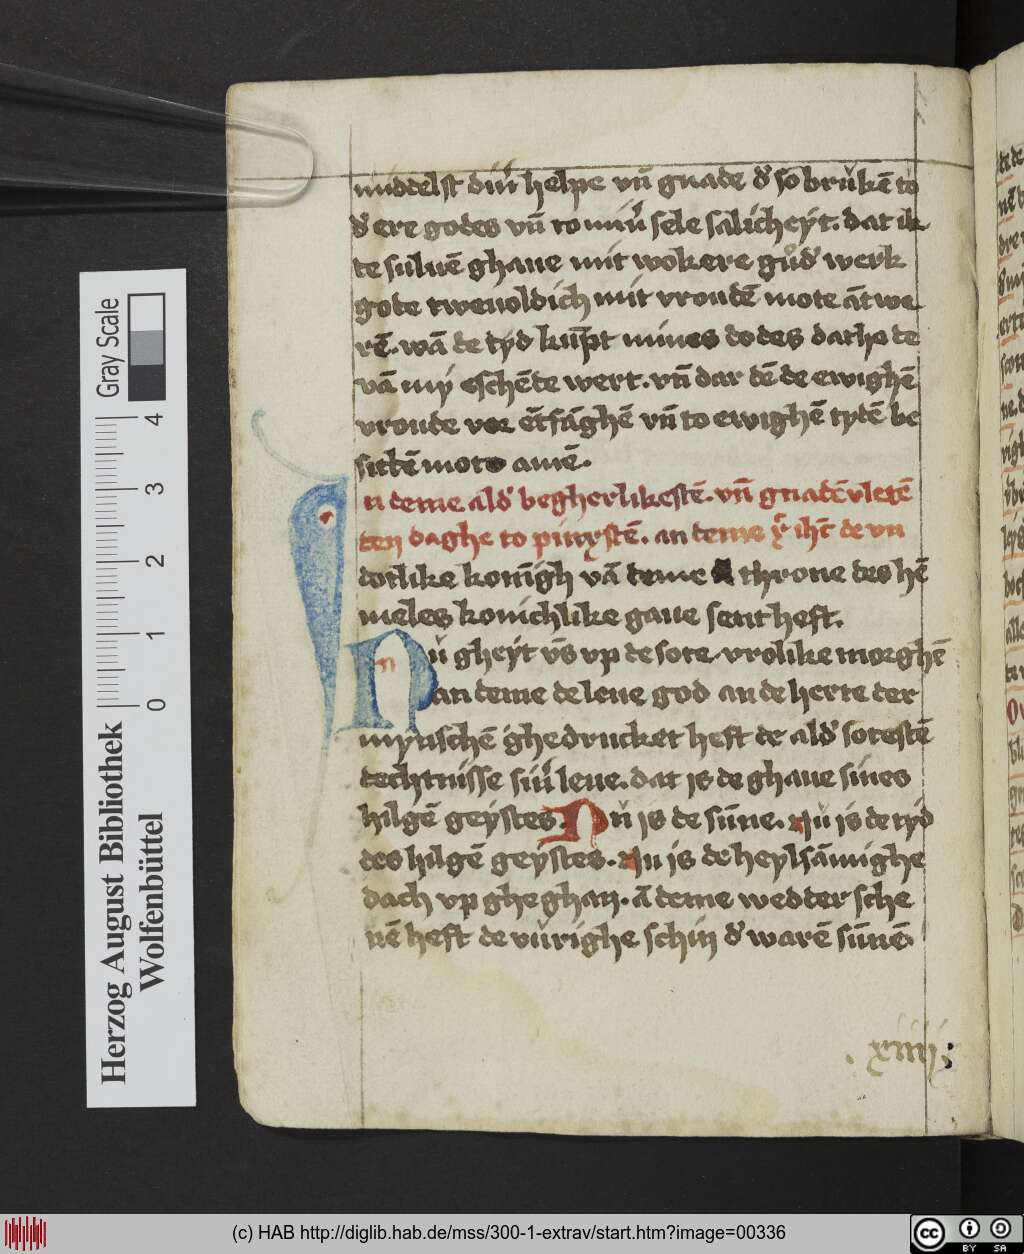 middelst din̄ helpe vn̄ gnade d' so brůkē to
d' ere godes vn̄ to min̄ sele salicheyt. dat ik
te suluē ghaue mit wokere gůd' werk
gode tweuoldich mit vroudē mote ātwe
rē. wā de tyd kūpt mines dodes dathe de
vā my eschēde wert. vn̄ dar dē de ewighē
vroude vor ētfāghē vn̄ to ewighē tydē be
sittē mote amē.
In deme ald' begherlikestē. vn̄ gnadē vleten
den daghe to pinxstē. an deme xp̄ ihc̄ de vn
dotlike konīgh vā deme throne des hē
meles konichlike gaue sent heft.
Nů gheyt v̄s vp de sote vrolike morghē
an deme de leue god an de herte der
mynschē ghedrucket heft de ald' sotestē
dechtnisse sin̄ leue. dat is de ghaue sines
hilgē geystes. Nů is de sūne. Nů is de tyd
des hilgē geystes. Nu is de heylsāmighe
dach vp ghe ghan. ā deme wedder sche
nē heft de vůrighe schin d' warē sūnē.
.xiiij.
Gray Scale
0 1 2 3 4
Herzog August Bibliothek
Wolfenbüttel
(c) HAB http://diglib.hab.de/mss/300-1-extrav/start.htm?image=00336
cc BY SA